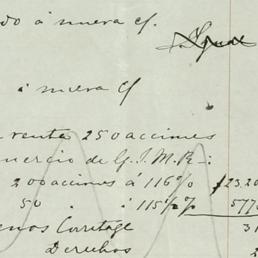 do á nueva c/.
á nueva c/
venta 250 acciones
mercio de G. I. M. R-:
200 acciones á 116% £23.20
50 " á 115½% 577
enos Corretage 31
Derechos 2